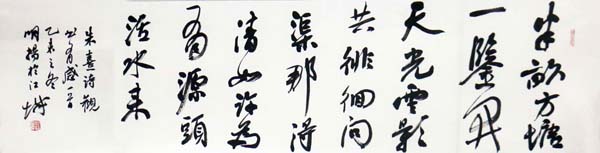 半畝方塘
一鑒開
天光雲影
共徘徊問
渠那得
清如許為
有源頭
活水來
朱熹詩觀
書有感一首
乙未之冬
明揚於江城